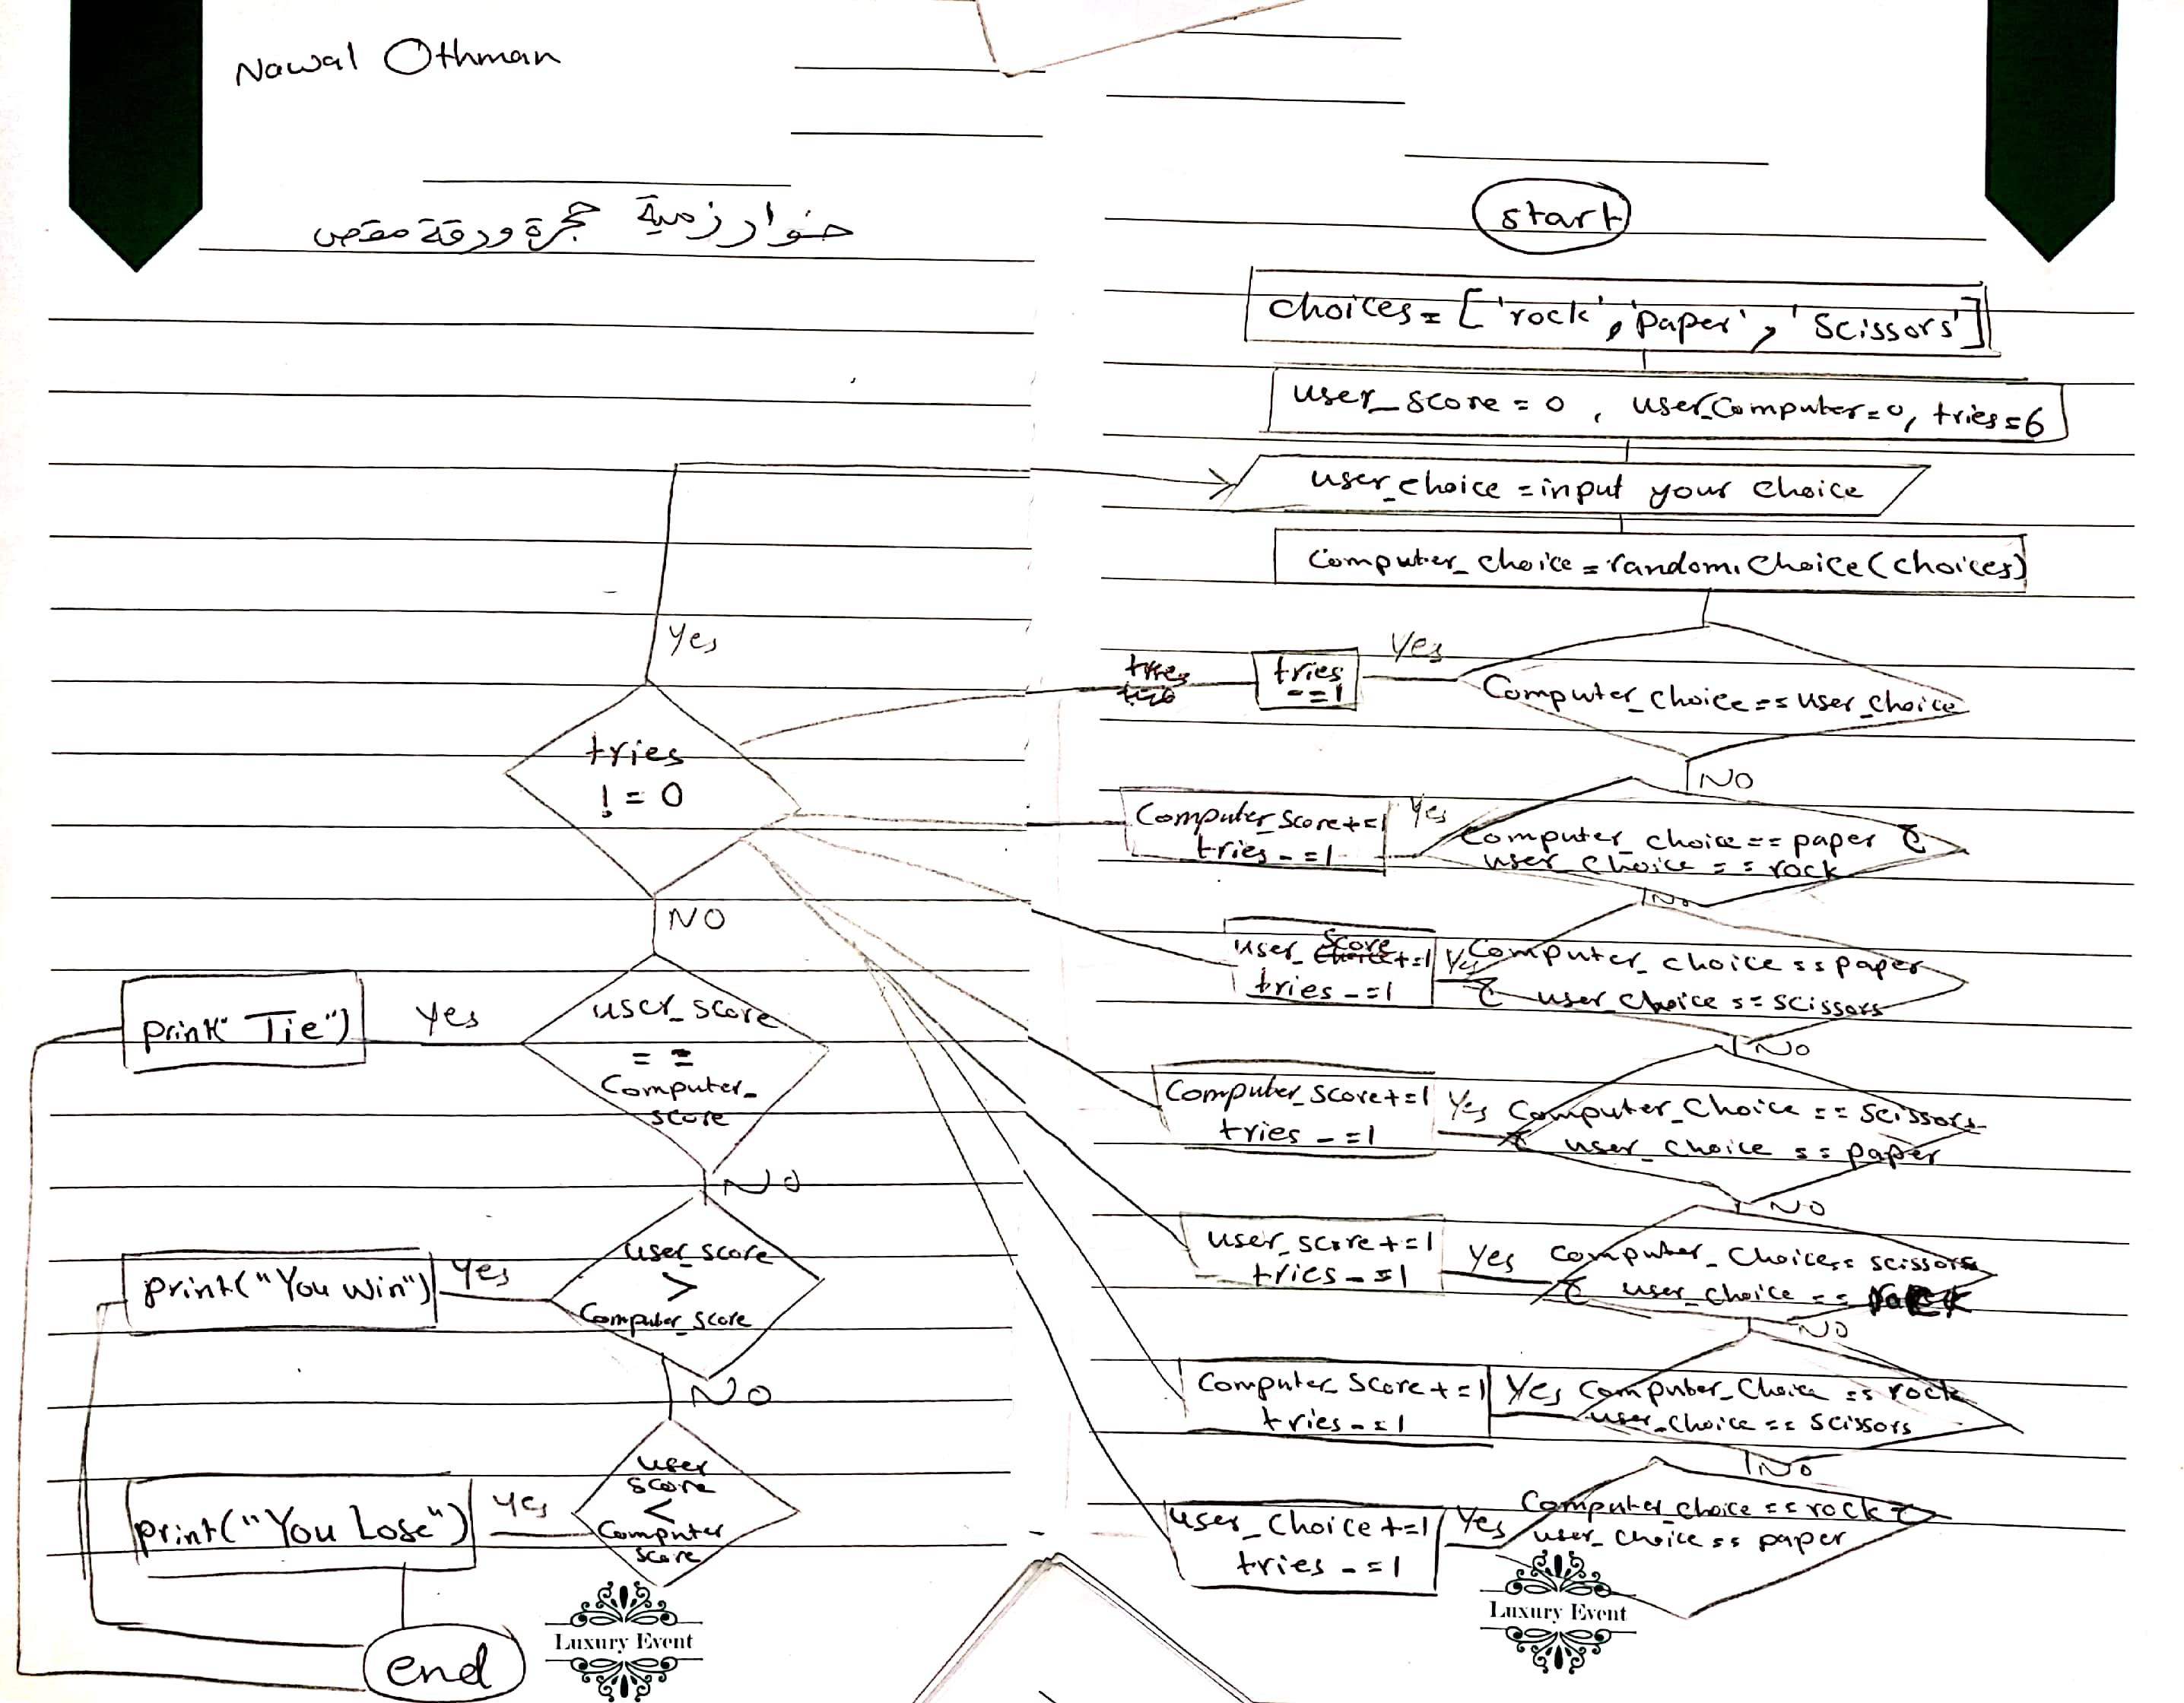 Nawal Othman
خوارزمية حجرة ورقة مقص
start
choices = ['rock', 'paper', 'scissors']
user_score = 0 , user_computer=0, tries=6
user_choice = input your choice
Computer_choice = random.choice(choices)
Computer_choice == user_choice
Yes
tries
-=1
NO
Computer_choice == paper &
user_choice == rock
Yes
Computer_score+=1
tries -=1
No
Computer_choice == paper
& user_choice == scissors
Yes
user_score+=1
tries -=1
No
Computer_choice == scissors
& user_choice == paper
Yes
Computer_score+=1
tries -=1
NO
Computer_choice== scissors
& user_choice == rock
Yes
user_score+=1
tries -=1
NO
Computer_choice == rock
user_choice == scissors
Yes
Computer_score+=1
tries -=1
No
Computer_choice == rock &
user_choice == paper
Yes
user_choice+=1
tries -=1
Luxury Event
tries
!= 0
Yes
NO
user_score
==
Computer_
score
Yes
print("Tie")
NO
user_score
>
Computer_score
Yes
print("You win")
NO
user
score
<
Computer
score
Yes
print("You Lose")
end
Luxury Event